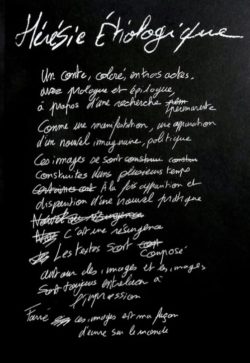 Hérésie Étiologique
Un conte, coloré, en trois actes,
avec prologue et épilogue,
à propos d'une recherche permanente
Comme une manifestation, une apparition
d'un nouvel imaginaire, politique
Ces images se sont
construites dans plusieurs temps
A la fois apparition et
disparition d'une nouvel pratique
C'est une résurgence
Les textes sont composé
autour des images et les images
sont toujours en relation à
l'impression
Faire ces images est ma façon
d'être sur le monde